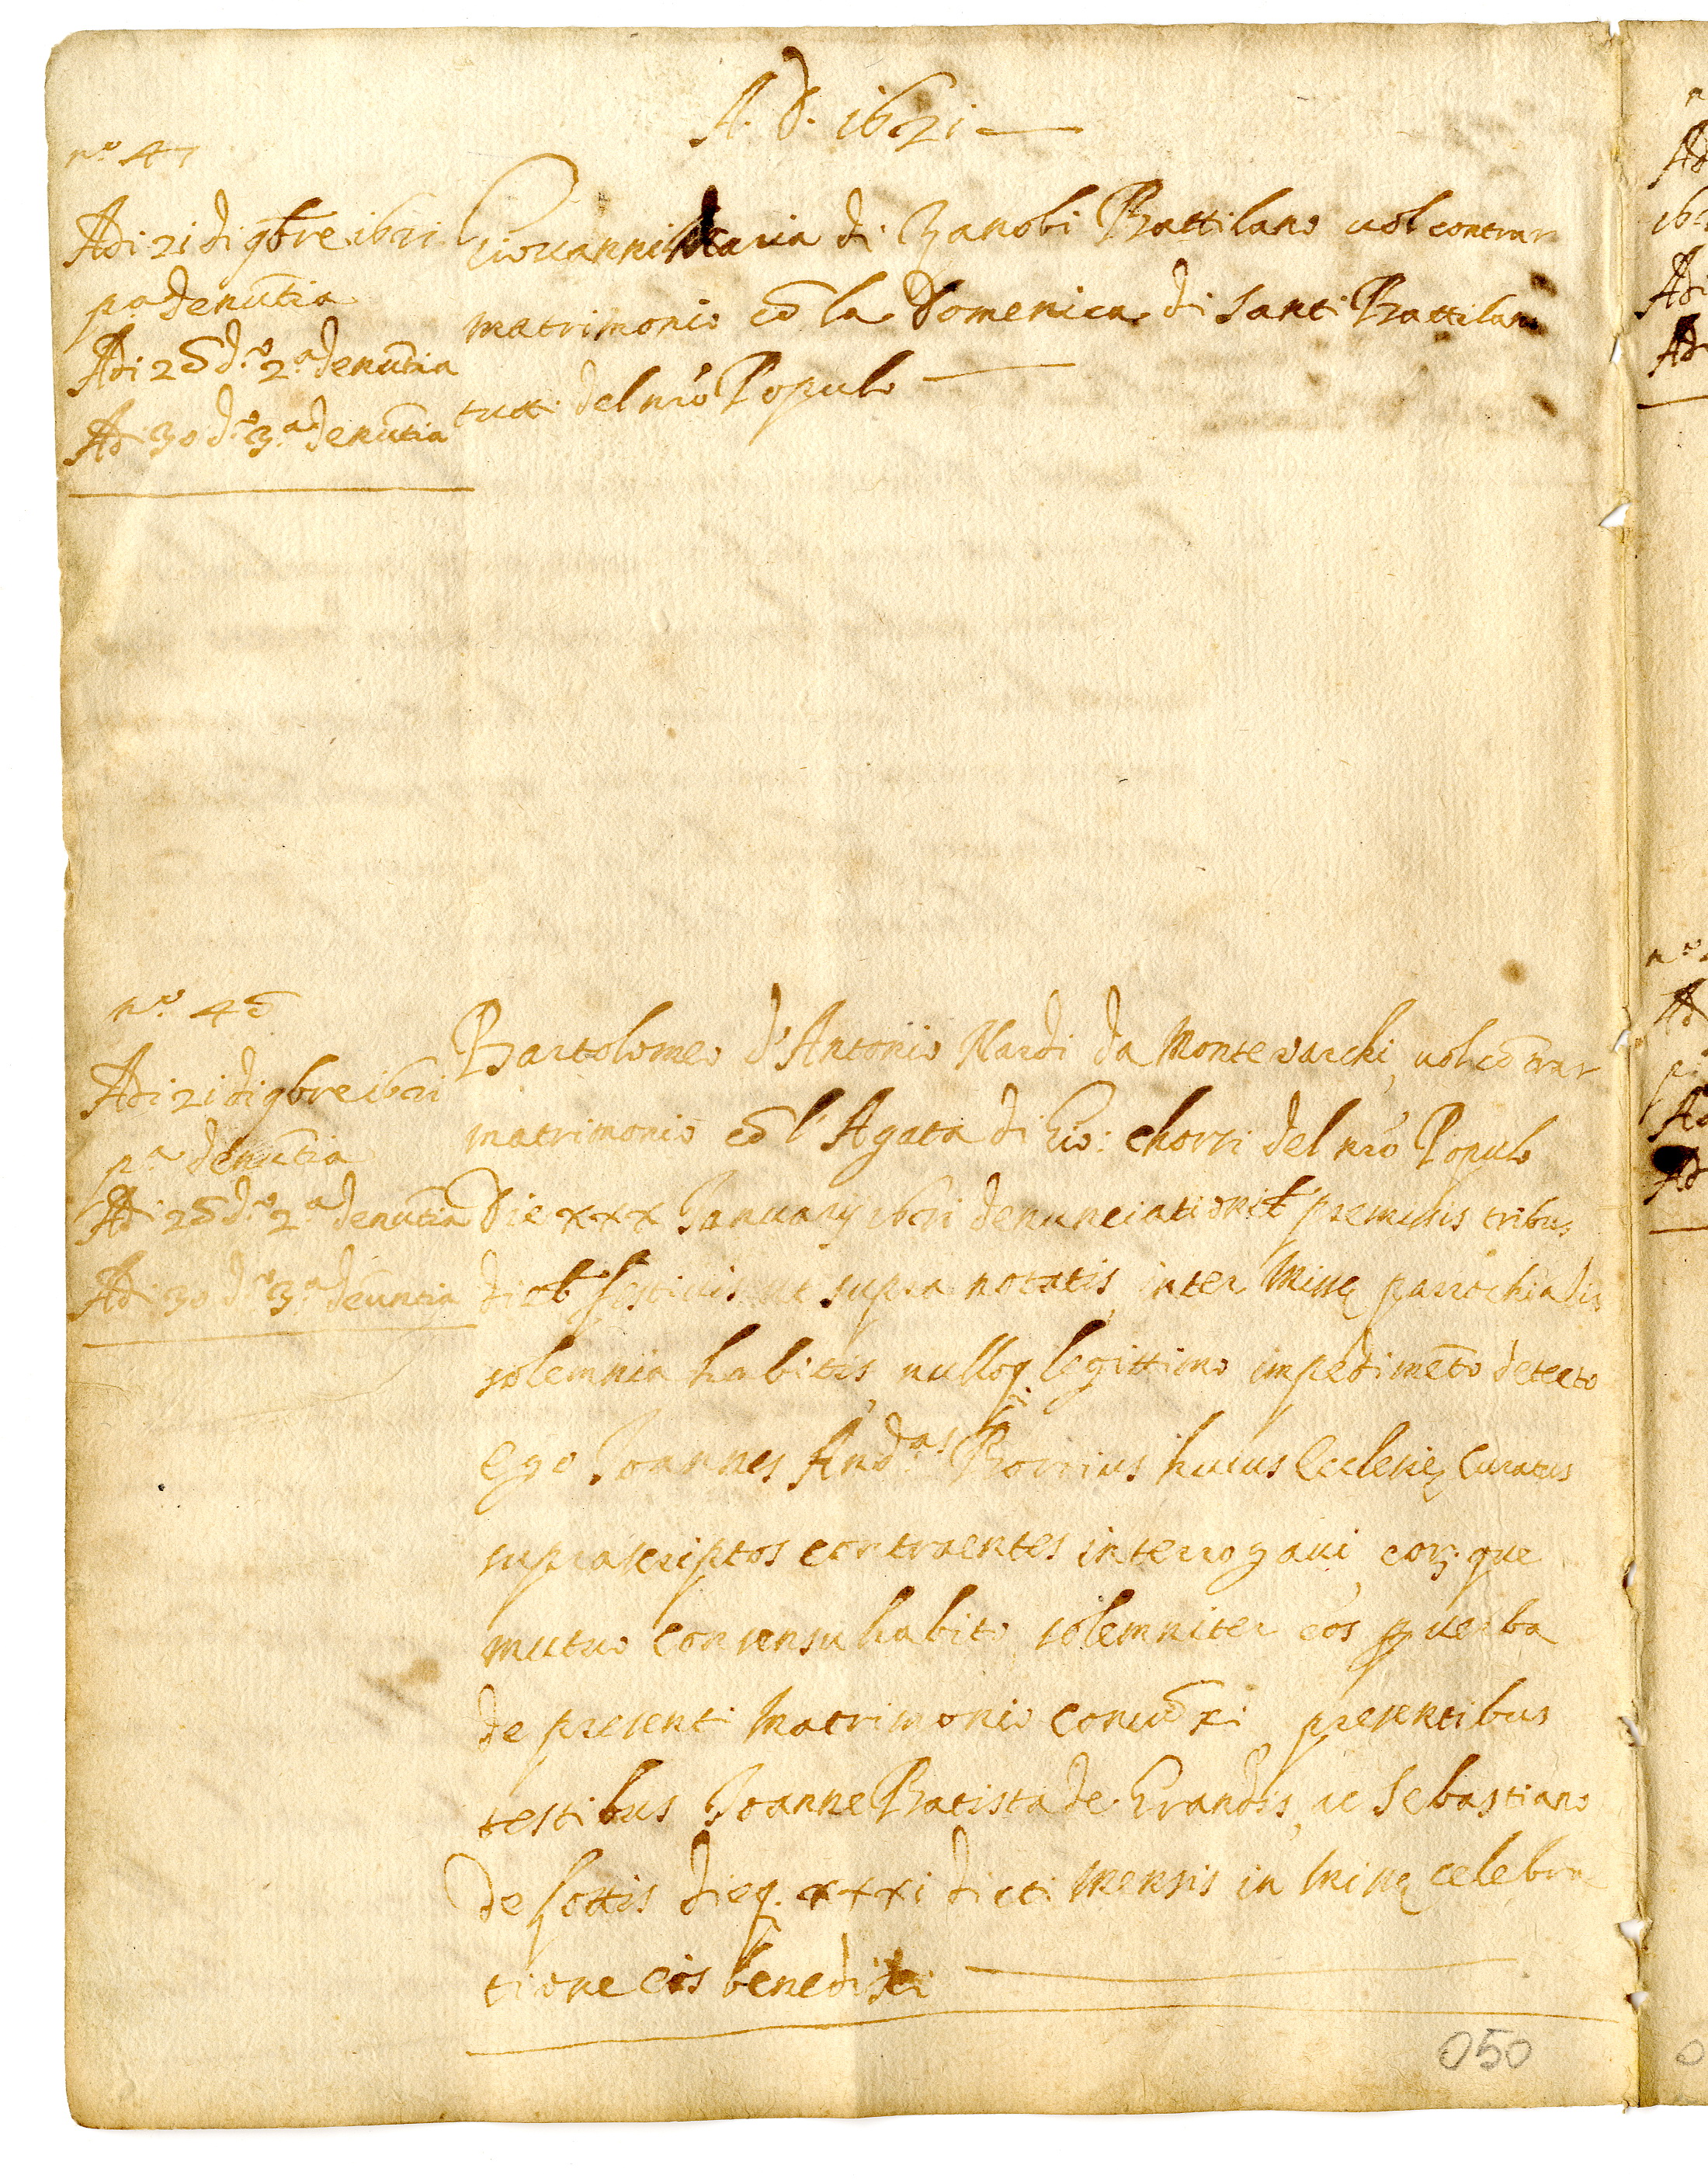 A. D. 1621
n.º 47
Adi 21 di 9bre 1621
p.ª denūtia
Adi 28 d.º 2.ª denūtia
Adi 30 d.º 3.ª denūtia
Giovanni Maria di Zanobi Battilano vol contrar
matrimonio cō la Domenica di Santi Battilano
tutti del nrō Populo
n.º 48
Adi 21 di 9bre 1621
p.ª denūtia
Adi 28 d.º 2.ª denūtia
Adi 30 d.º 3.ª denūntia
Bartolomeo d'Antonio Nardi da Montevarchi, vol cōtrar
matrimonio cō l'Agata di Gio: chorri del nrō Populo
Die xxx Januarij 1621 denunciationib. premissis tribus
dieb. festivis ut supra notatis, inter Missę parrochialis
solemnia habitis, nulloq. legittimo impedimēto detecto
Ego Joannes And.as huius Ecclesię Curatus
suprascriptos contraentes interrogavi, eorūque
mutuo consensu habito solemniter eos p verba
de presenti Matrimonio coniūxi, presentibus
testibus Joanne Batista de Grandis, ac Sebastiano
de sottis dieq. xxxi dicti Mensis in Missę celebra
tione eos benedixi
050